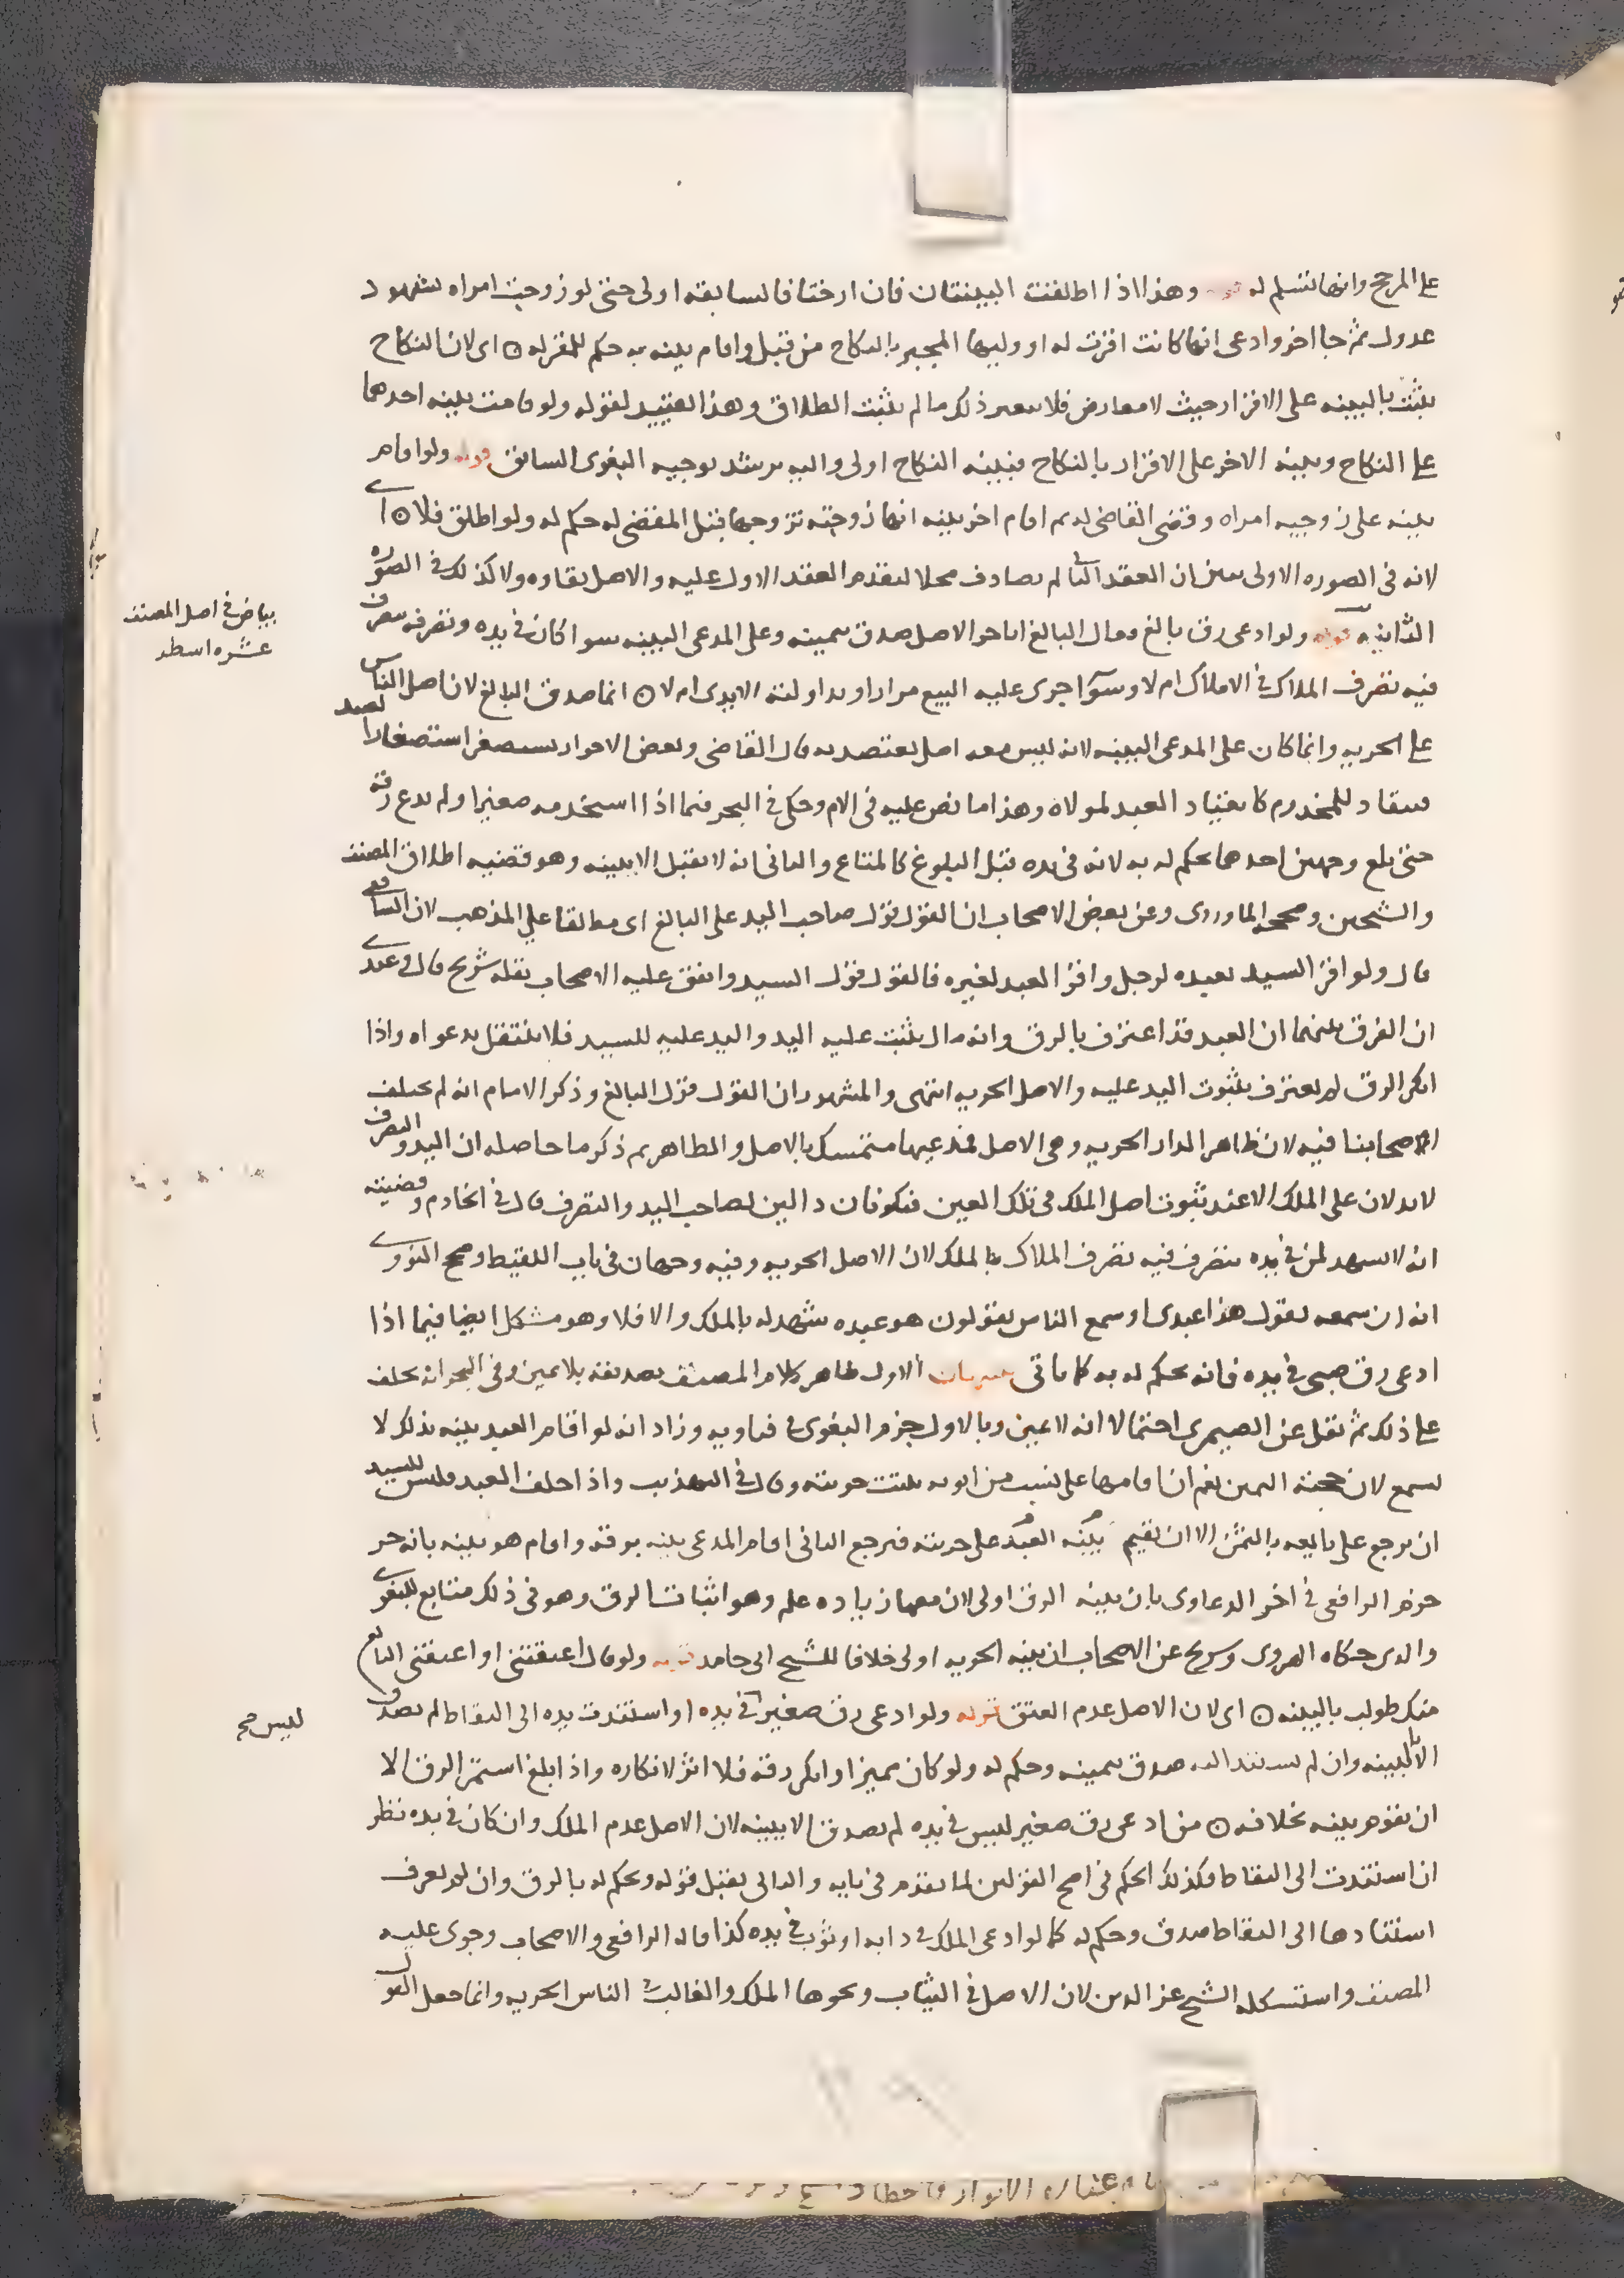 على المرجح وانها تسلم له قوله وهذا اذا اطلقت البينتان فان ارختا فالسابقه اولى حتى لو زوجت امراه بشهود
عدول ثم جا اخر وادعى انها كانت اقرت له او وليها المجبر بالنكاح من قبل واقام بينه به حكم للمقر له ۞ اى لان النكاح
يثبت بالبينه على الاقرار حيث لا معارض فلا يعير ذلك ما لم يثبت الطلاق وهذا التقييد لقوله ولو قامت بينه احدهما
على النكاح وبينه الاخر على الاقرار بالنكاح فبينه النكاح اولى واليه يرشد توجيه البغوى السابق قوله ولو اقام
بينه على زوجيه امراه وقضى القاضى له ثم اقام اخر بينه انها زوجته تزوجها قبل المقضى له حكم له ولو اطلق فلا ۞ اى
لانه فى الصوره الاولى تبين ان العقد الثانى لم يصادف محلا لتقدم العقد الاول عليه والاصل بقاوه ولا كذلك فى الصوره
الثانيه قوله ولو ادعى رق بالغ وقال البالغ انا حر الاصل صدق بيمينه وعلى المدعى البينه سوا كان فى يده وتصرفه تصرف
فيه تصرف الملاك فى الاملاك ام لا وسوآ جرى عليه البيع مرارا وتداولته الايدى ام لا ۞ انما صدق البالغ لان اصل الناس
على الحريه وانما كان على المدعى البينه لانه ليس معه اصل يعتضد به قال القاضى وبعض الاحرار يستصغر استصغارا
فينقاد للمخدوم كانقياد العبد لمولاه وهذا ما نص عليه فى الام وحكى فى البحر فيما اذا استخدمه صغيرا ولم يدع رقه
حتى بلغ وجهين احدهما يحكم له به لانه فى يده قبل البلوغ كالمتاع والثانى انه لا يقبل الا ببينه وهو قضيه اطلاق المصنف
والشيخين وصححه الماوردى وعن بعض الاصحاب ان القول قول صاحب اليد على البالغ اى مطلقا على المذهب لان الشافعى
قال ولو اقر السيد بعبده لرجل واقر العبد لغيره فالقول قول السيد واتفق عليه الاصحاب نقله شريح قال وعندى
ان الفرق بينهما ان العبد قد اعترف بالرق وانه مال يثبت عليه اليد واليد عليه للسيد فلا ينتقل بدعواه واذا
انكر الرق لم يعترف بثبوت اليد عليه والاصل الحريه انتهى والمشهور ان القول قول البالغ وذكر الامام انه لم يختلف
اصحابنا فيه لان ظاهر الدار الحريه وهى الاصل فمدعيها متمسك بالاصل والظاهر ثم ذكر ما حاصله ان اليد والتصرف
لا يدلان على الملك الا عند ثبوت اصل الملك فى تلك العين فيكونان دالين لصاحب اليد والتصرف قال فى الخادم وقضيته
انه لا يشهد لمن فى يده يتصرف فيه تصرف الملاك بالملك لان الاصل الحريه وفيه وجهان فى باب اللقيط وصحح النووى
انه ان سمعه يقول هذا عبدى او سمع الناس يقولون هو عبده شهد له بالملك والا فلا وهو مشكل ايضا فيما اذا
ادعى رق صبى فى يده فانه يحكم له به كما ياتى تنبيهان الاول ظاهر كلام المصنف تصديقه بلا يمين وفى البحر انه يحلف
على ذلك ثم نقل عن الصيمرى احتمالا انه لا يمين وبالاول جزم البغوى فى فتاويه وزاد انه لو اقام العبد بينه بذلك لا
تسمع لان حجته اليمين نعم ان اقامها على نسب من ابويه يثبت حريته وقال فى التهذيب واذا احلف العبد فليس للسيد
ان يرجع على بايعه بالثمن الا ان يقيم بينه العبد على حريته فيرجع الثانى اقام المدعى بينه برقه واقام هو بينه بانه حر
جزم الرافعى فى اخر الدعاوى بان بينه الرق اولى لان معها زياده علم وهو اثبات الرق وهو فى ذلك متابع للبغوى
والذى حكاه الهروى وشريح عن الاصحاب ان بينه الحريه اولى خلافا للشيخ ابى حامد قوله ولو قال اعتقتنى او اعتقنى البايع
منك طولب بالبينه ۞ اى لان الاصل عدم العتق قوله ولو ادعى رق صغير فى يده او استندت يده الى التقاط لم يصدق
الا ببينه وان لم يستند اليه صدق بيمينه وحكم له ولو كان مميزا وانكر رقه فلا اثر لانكاره واذا بلغ استمر الرق الا
ان تقوم بينه بخلافه ۞ من ادعى رق صغير ليس فى يده لم يصدق الا ببينه لان الاصل عدم الملك وان كان فى يده نظر
ان استندت الى التقاط فكذلك الحكم فى اصح القولين لما تقدم فى بابه والثانى يقبل قوله ويحكم له بالرق وان لم يعرف
استنادها الى التقاط صدق وحكم له كما لو ادعى الملك فى دابه او ثوب فى يده كذا قاله الرافعى والاصحاب وجرى عليه
المصنف واستشكله الشيخ عز الدين لان الاصل فى الثياب ونحوها الملك والغالب فى الناس الحريه وانما جعل القول
بياض فى اصل المصنف
عشره اسطر
ليس صح